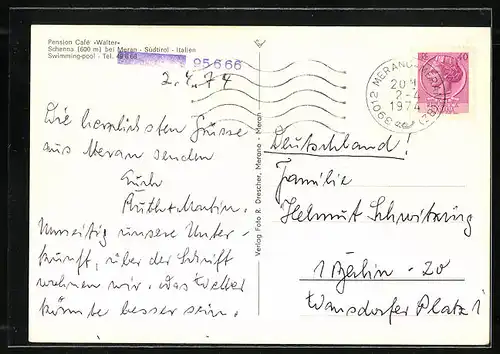 Pension Café «Walter»
Schenna (600 m) bei Meran - Südtirol - Italien
Swimming-pool - Tel.
95666
2.4.74
Die herzlichsten Grüsse
aus Meran senden
Euch
Ruth + Martin.
Umseitig unsere Unter-
kunft, über der Schrift
wohnen wir. Das Wetter
könnte besser sein.
Verlag Foto R. Drescher, Merano - Meran
39012 MERANO
2-4
1974
Deutschland!
Familie
Helmut Schwitzing
1 Berlin - 20
Wansdorfer Platz 1